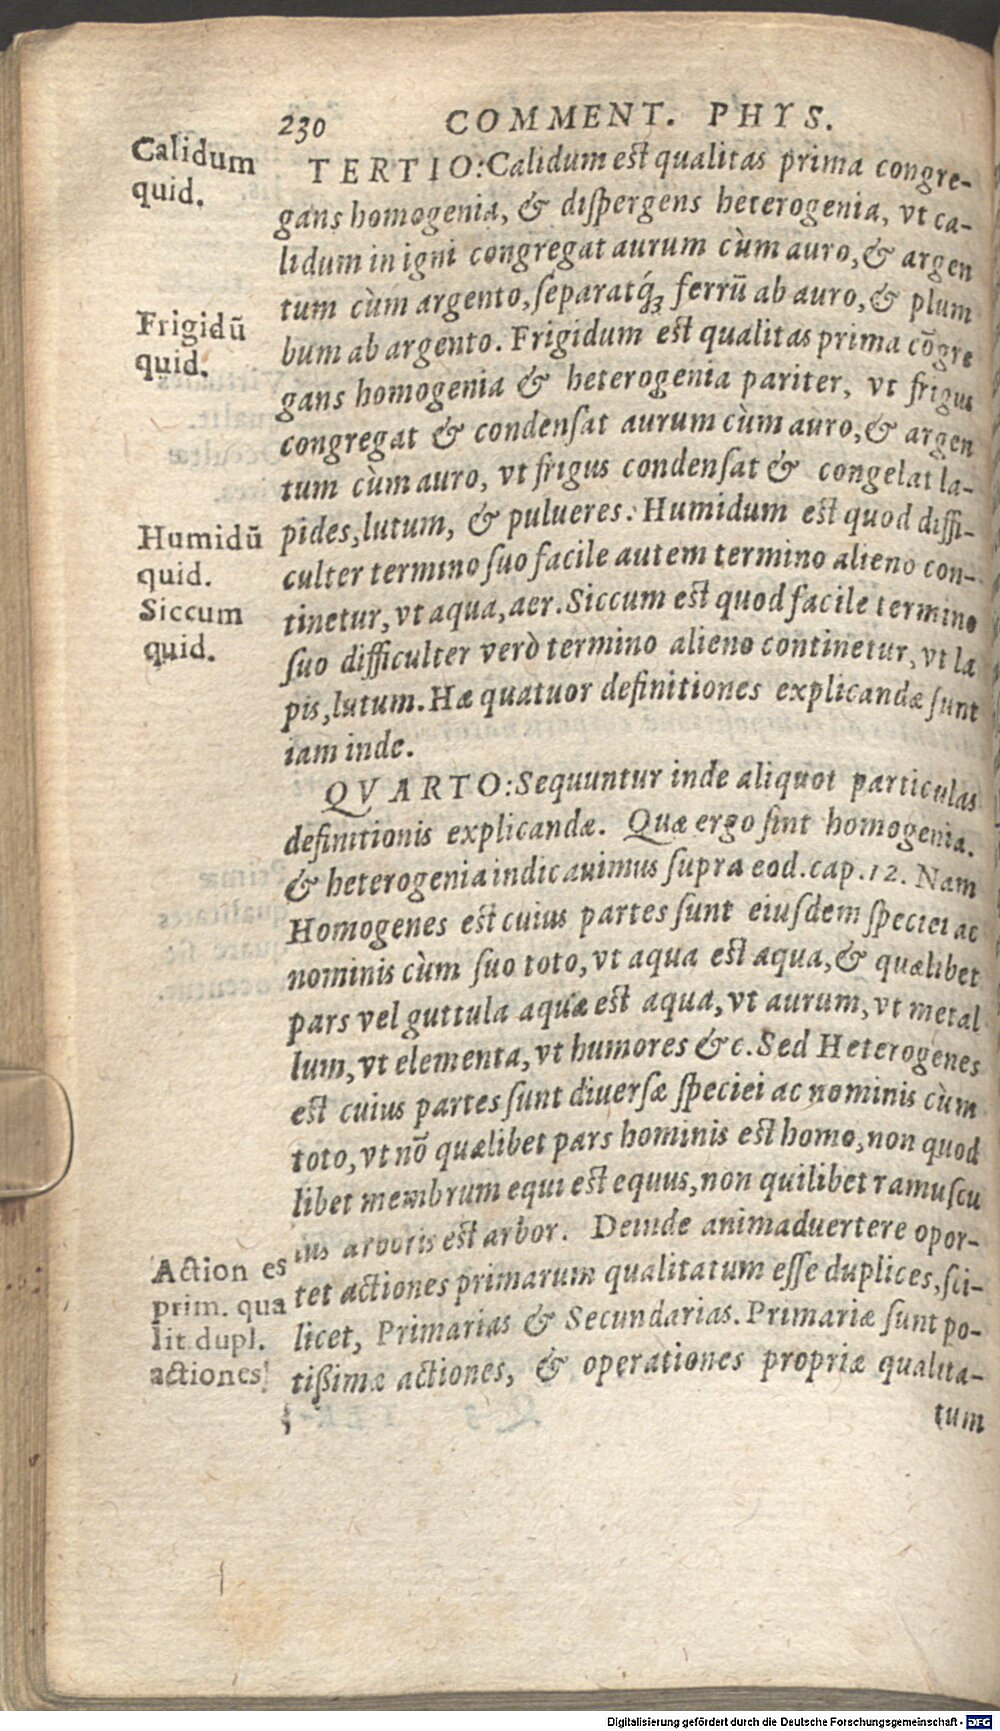 230 COMMENT. PHYS.
Calidum
quid.
TERTIO: Calidum est qualitas prima congre-
gans homogenia, & dispergens heterogenia, vt ca-
lidum in igni congregat aurum cùm auro, & argen
tum cùm argento, separatq́ʒ ferrū ab auro, & plum
bum ab argento. Frigidum est qualitas prima cōgre
Frigidū
quid.
gans homogenia & heterogenia pariter, vt frigus
congregat & condensat aurum cùm auro, & argen
tum cùm auro, vt frigus condensat & congelat la-
pides, lutum, & pulueres. Humidum est quod diffi-
Humidū
quid.
culter termino suo facile autem termino alieno con-
tinetur, vt aqua, aer. Siccum est quod facile termino
Siccum
quid.
suo difficulter verò termino alieno continetur, vt la
pis, lutum. Hæ quatuor definitiones explicandæ sunt
iam inde.
QVARTO: Sequuntur inde aliquot particulas
definitionis explicandæ. Quæ ergo sint homogenia.
& heterogenia indicauimus supra eod. cap. 12. Nam
Homogenes est cuius partes sunt eiusdem speciei ac
nominis cùm suo toto, vt aqua est aqua, & quælibet
pars vel guttula aquæ est aqua, vt aurum, vt metal
lum, vt elementa, vt humores &c. Sed Heterogenes
est cuius partes sunt diuersæ speciei ac nominis cùm
toto, vt nō quælibet pars hominis est homo, non quod
libet membrum equi est equus, non quilibet ramuscu
lus arboris est arbor. Deinde animaduertere opor-
Action es
prim. qua
lit dupl.
actiones
tet actiones primarum qualitatum esse duplices, sci-
licet, Primarias & Secundarias. Primariæ sunt po-
tißimæ actiones, & operationes propriæ qualita-
tum
Digitalisierung gefördert durch die Deutsche Forschungsgemeinschaft - DFG